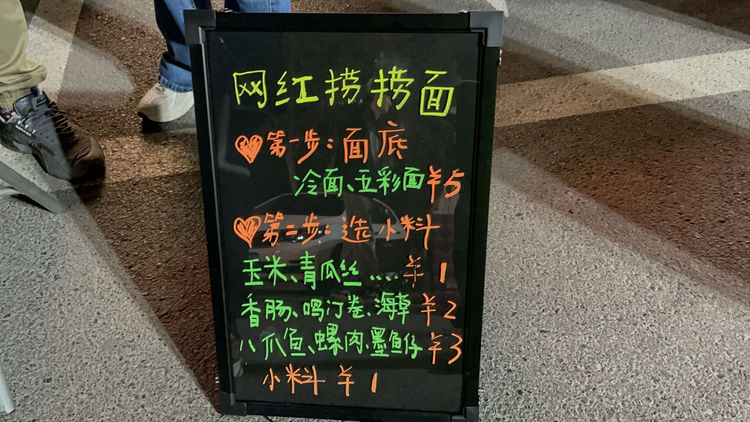 网红捞捞面
第一步:面底
冷面、五彩面¥5
第二步:选小料
玉米、青瓜丝.....¥1
香肠、鸣汀卷、海草¥2
八爪鱼、螺肉、墨鱼仔¥3
小料¥1